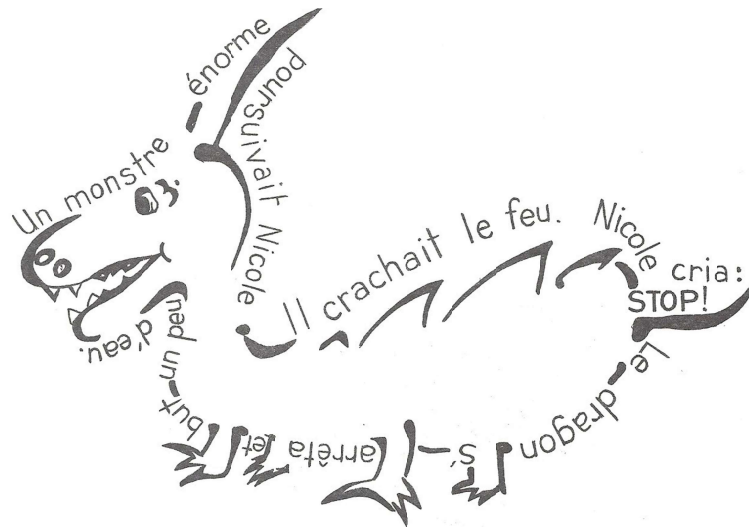 Un monstre énorme
poursuivait Nicole
Il crachait le feu. Nicole
cria:
STOP!
Le dragon
s'arrêta et
but un peu
d'eau.